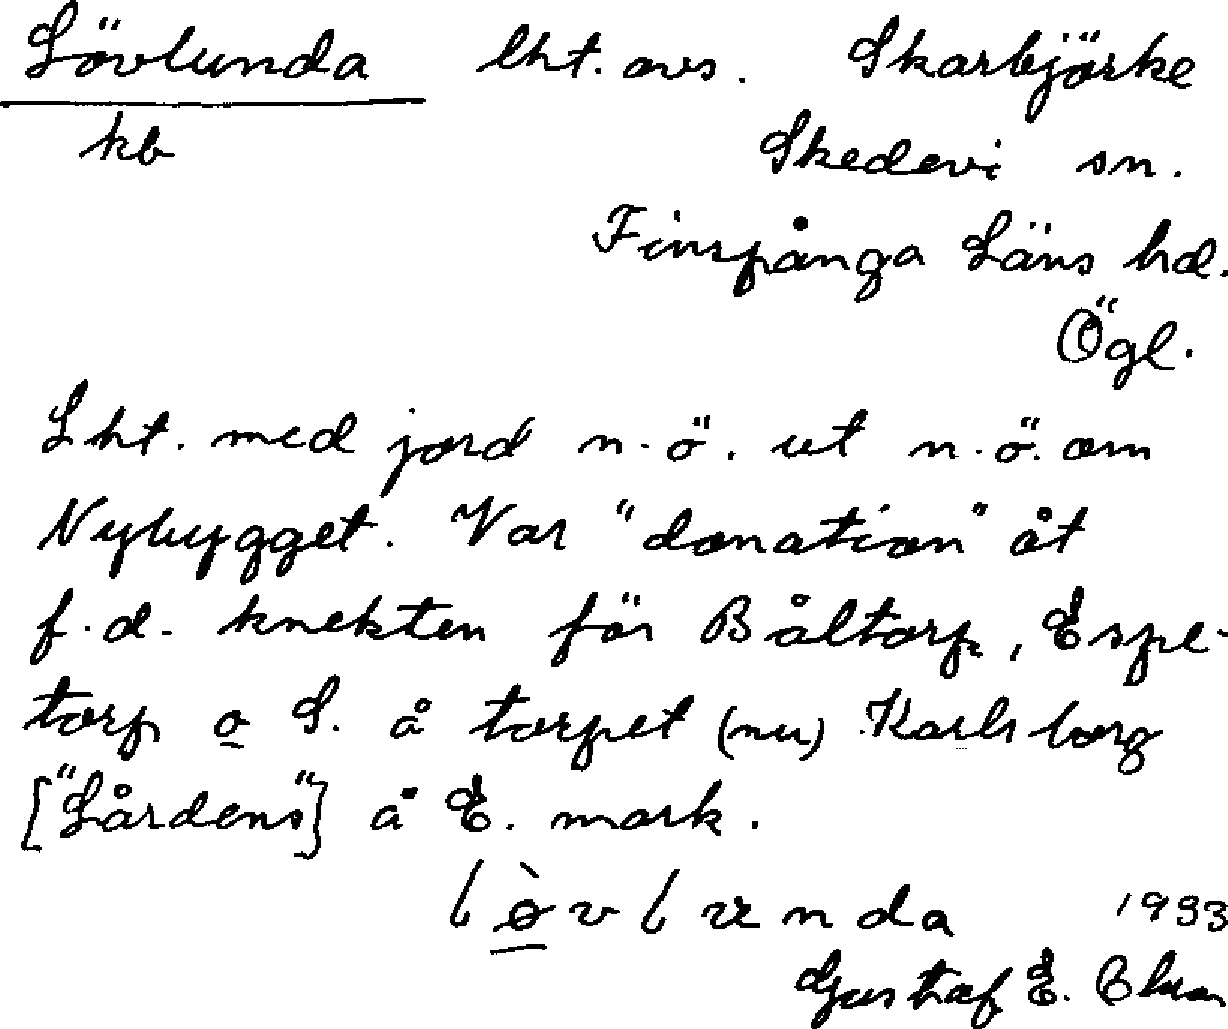 Lövlunda lht. avs. Skarbjörke
kb Skedevi sn.
Finspånga Läns hd.
Ögl.
Lht. med jord n.ö. ut n.ö. om
Nybygget. Var "donation" åt
f.d. knekten för Båltorp, Espe-
torp o S. å torpet (nu) Karlsborg
["Lårdens"] å E. mark.
lòvlunda 1933
Gustaf E.